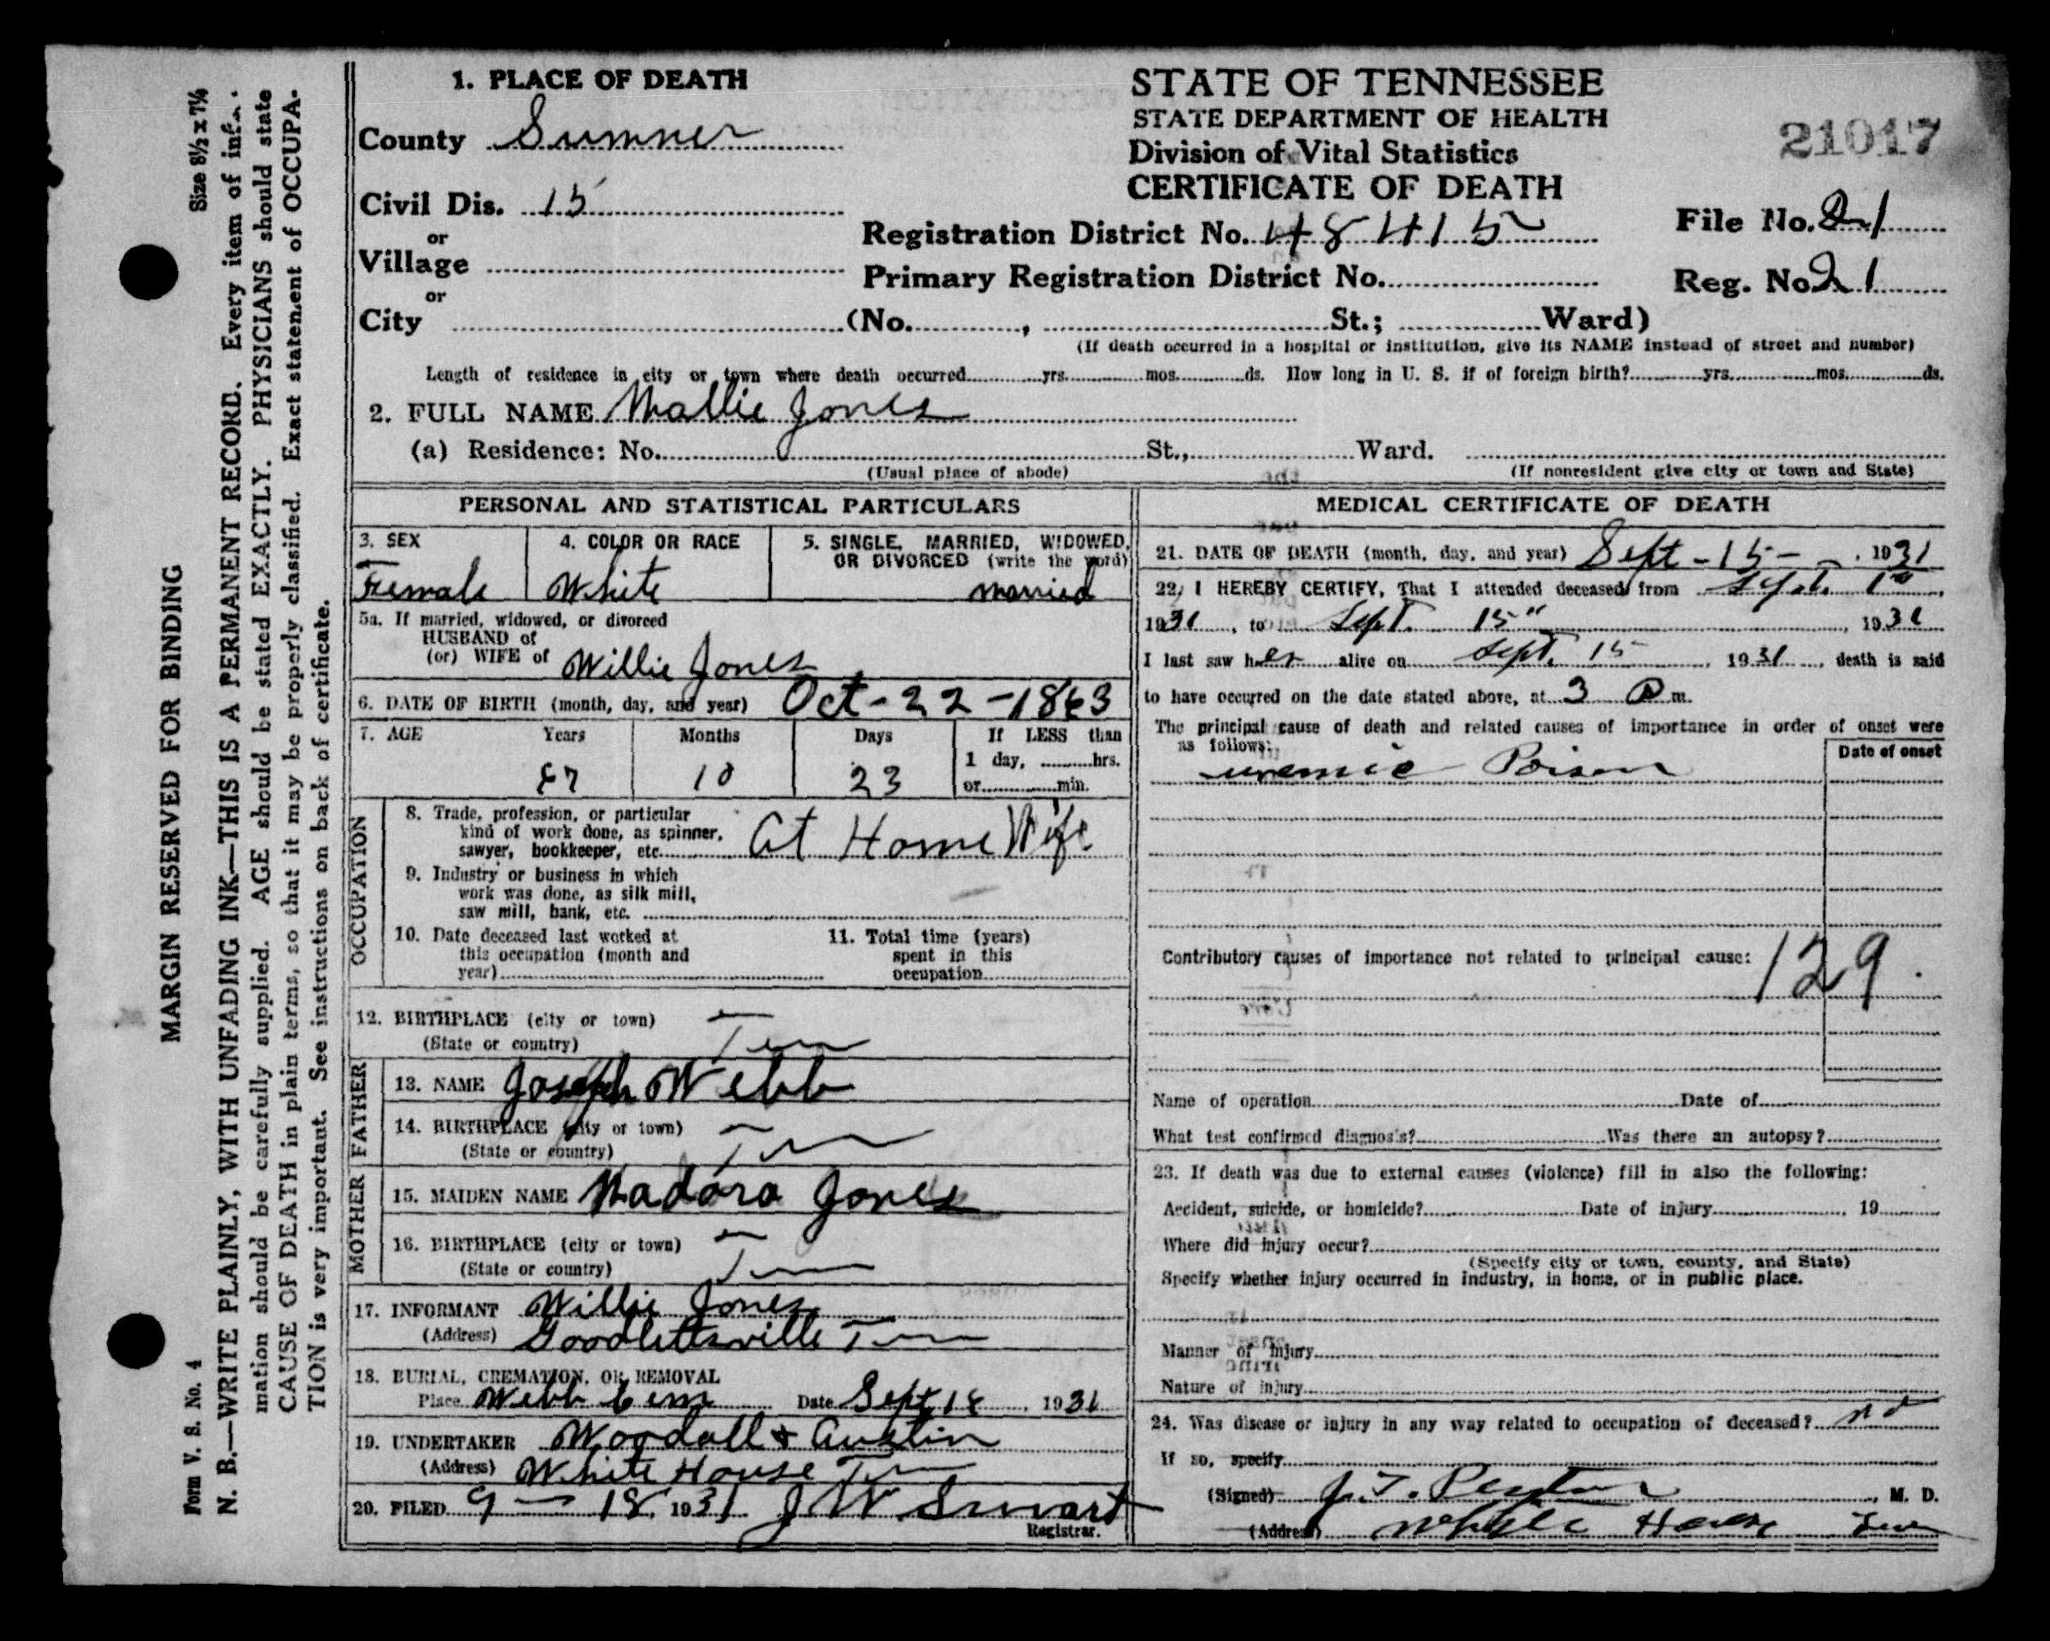 1. PLACE OF DEATH
County Sumner
Civil Dis. 15
or
Village
or
City (No. , St.; Ward)
STATE OF TENNESSEE
STATE DEPARTMENT OF HEALTH
Division of Vital Statistics
CERTIFICATE OF DEATH
21017
Registration District No. 48415
File No. 21
Primary Registration District No.
Reg. No 21
(If death occurred in a hospital or institution, give its NAME instead of street and number)
Length of residence in city or town where death occurred yrs. mos. ds. How long in U. S. if of foreign birth? yrs. mos. ds.
2. FULL NAME Mallie Jones
(a) Residence: No. St., Ward.
(Usual place of abode) (If nonresident give city or town and State)
PERSONAL AND STATISTICAL PARTICULARS
3. SEX
Female
4. COLOR OR RACE
White
5. SINGLE, MARRIED, WIDOWED,
OR DIVORCED (write the word)
married
5a. If married, widowed, or divorced
HUSBAND of
(or) WIFE of Willie Jones
6. DATE OF BIRTH (month, day, and year) Oct-22-1863
7. AGE Years Months Days If LESS than
1 day, hrs.
67 10 23 or min.
OCCUPATION
8. Trade, profession, or particular
kind of work done, as spinner,
sawyer, bookkeeper, etc. At Home Wife
9. Industry or business in which
work was done, as silk mill,
saw mill, bank, etc.
10. Date deceased last worked at
this occupation (month and
year)
11. Total time (years)
spent in this
occupation
12. BIRTHPLACE (city or town)
(State or country) Tenn
FATHER
13. NAME Joseph Webb
14. BIRTHPLACE (city or town)
(State or country) Tenn
MOTHER
15. MAIDEN NAME Madora Jones
16. BIRTHPLACE (city or town)
(State or country) Tenn
17. INFORMANT Willie Jones
(Address) Goodlettsville Tenn
18. BURIAL, CREMATION, OR REMOVAL
Place Webb Cem Date Sept 18, 1931
19. UNDERTAKER Woodall & Austin
(Address) White House Tenn
20. FILED 9-18 1931 J W Swart
Registrar.
MEDICAL CERTIFICATE OF DEATH
21. DATE OF DEATH (month, day, and year) Sept-15-, 1931
22. I HEREBY CERTIFY, That I attended deceased from Sept. 1st,
1931, to Sept. 15", 1931
I last saw her alive on Sept. 15, 1931, death is said
to have occurred on the date stated above, at 3 P m.
The principal cause of death and related causes of importance in order of onset were
as follows:
Date of onset
uremic Poison
Contributory causes of importance not related to principal cause:
129.
Name of operation Date of
What test confirmed diagnosis? Was there an autopsy?
23. If death was due to external causes (violence) fill in also the following:
Accident, suicide, or homicide? Date of injury, 19
Where did injury occur?
(Specify city or town, county, and State)
Specify whether injury occurred in industry, in home, or in public place.
Manner of injury
Nature of injury
24. Was disease or injury in any way related to occupation of deceased? no
If so, specify
(Signed) J. T. Peyton, M. D.
(Address) White House Tenn
MARGIN RESERVED FOR BINDING
Form V. S. No. 4
Size 8½ x 7¼
N. B.—WRITE PLAINLY, WITH UNFADING INK—THIS IS A PERMANENT RECORD. Every item of infor-
mation should be carefully supplied. AGE should be stated EXACTLY. PHYSICIANS should state
CAUSE OF DEATH in plain terms, so that it may be properly classified. Exact statement of OCCUPA-
TION is very important. See instructions on back of certificate.